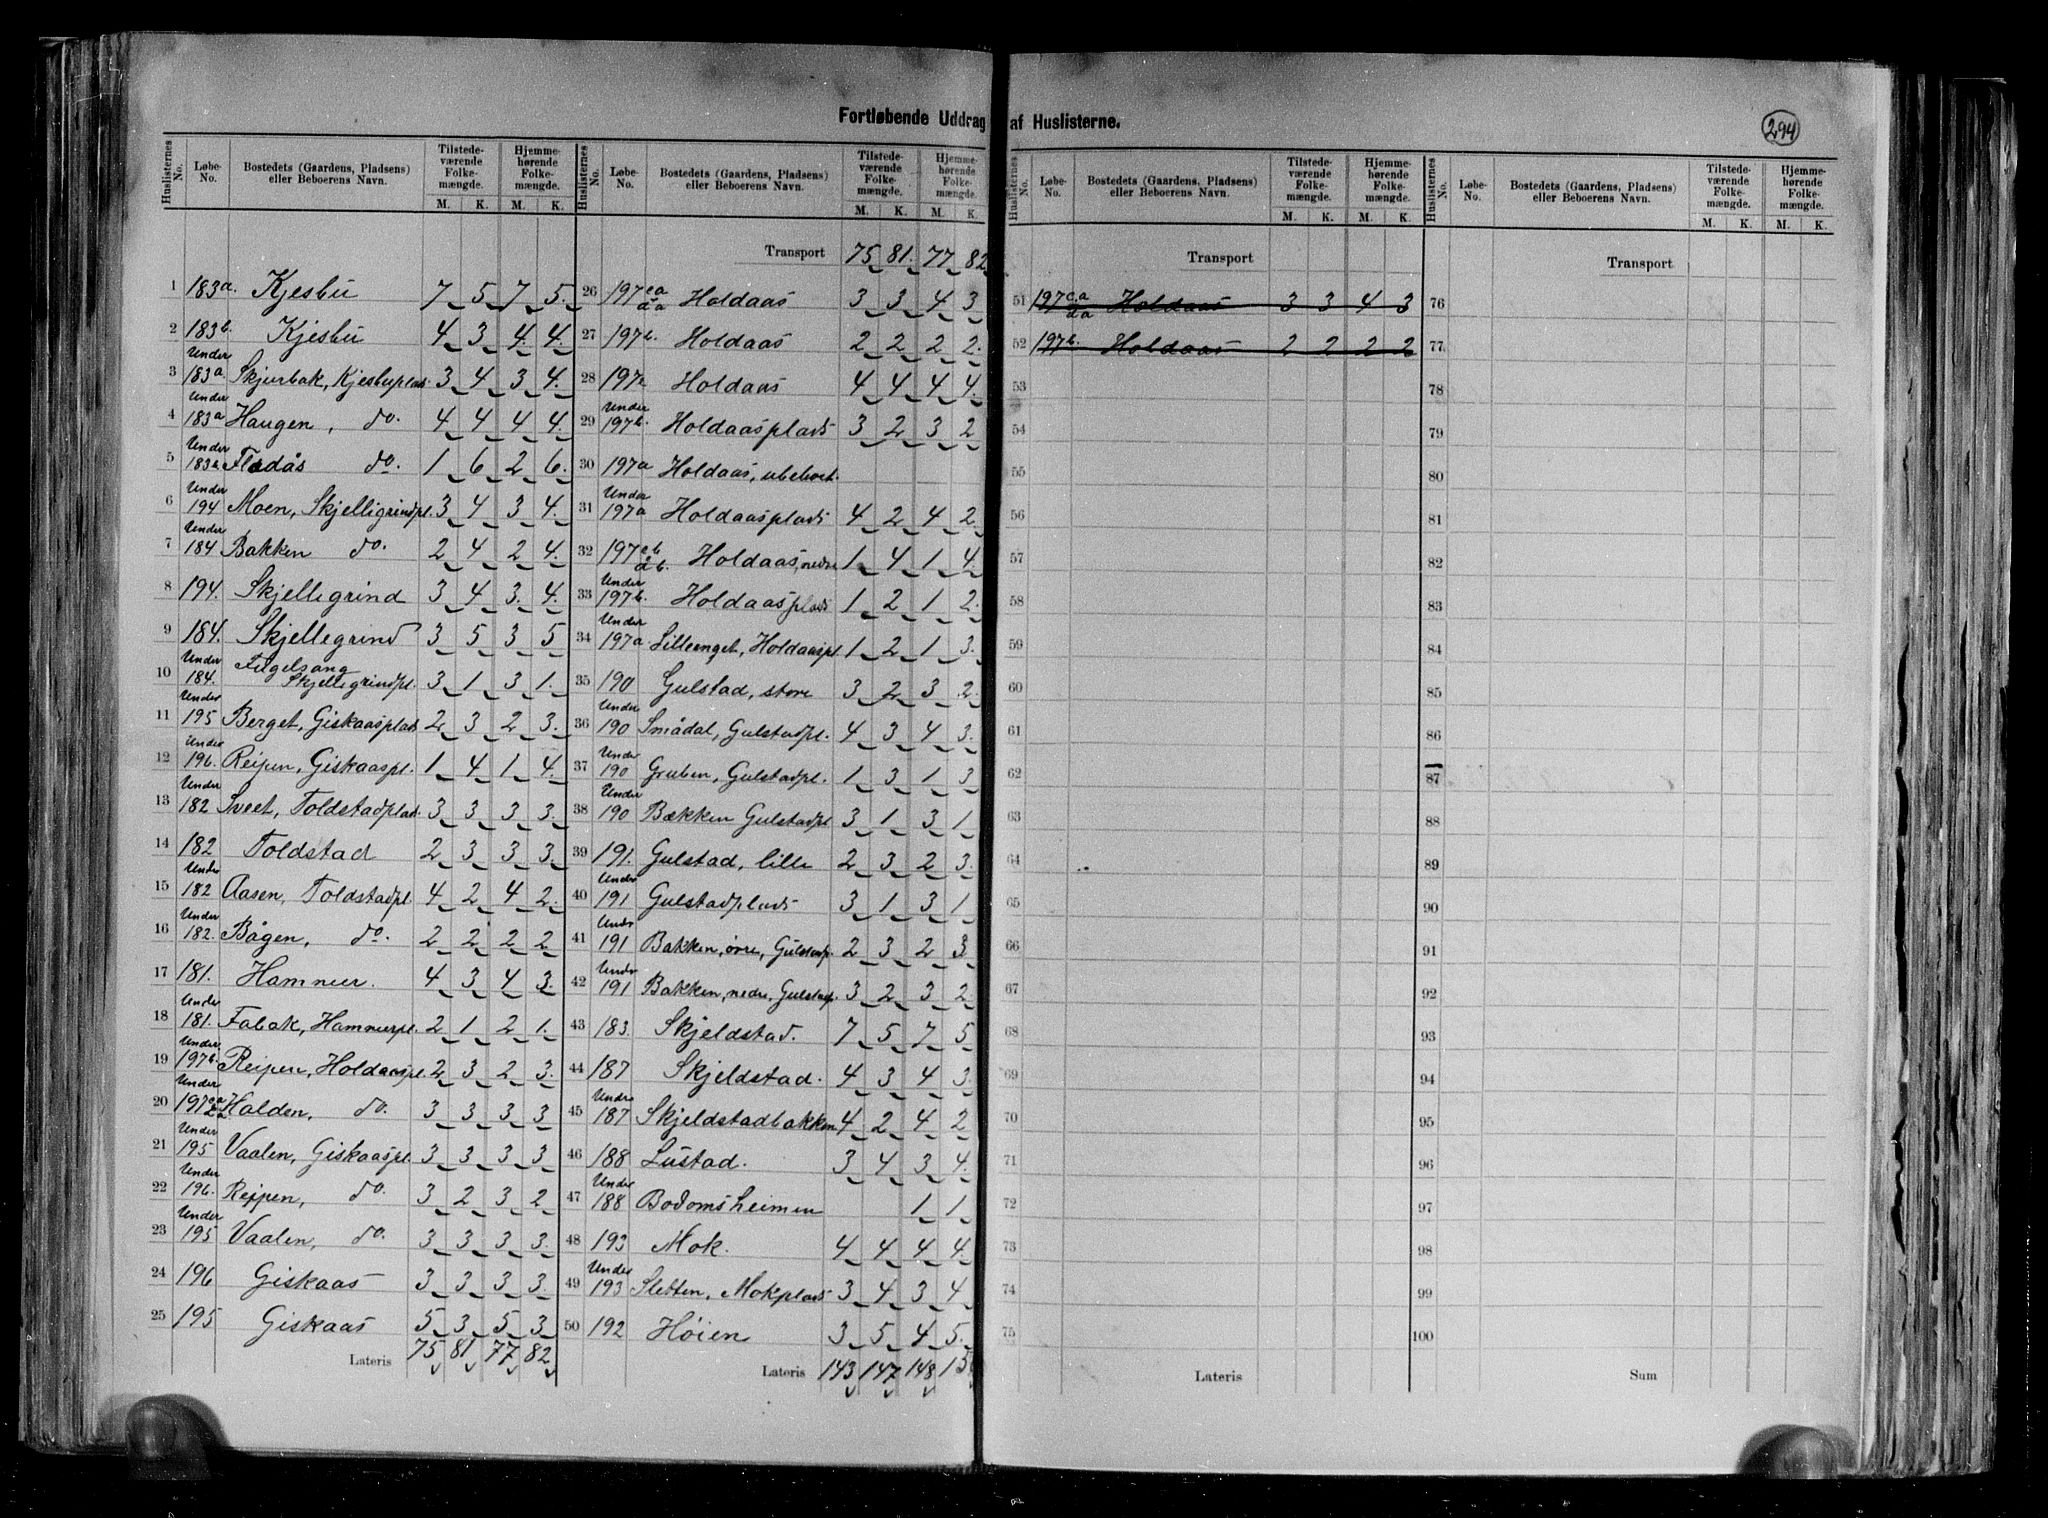 Fortløbende Uddrag af Huslisterne.
294
Huslisternes No. Løbe-No. Bostedets (Gaardens, Pladsens) eller Beboerens Navn. Tilstedeværende Folkemængde. M. K. Hjemmehørende Folkemængde. M. K.
1 183a. Kjesbu 7 5 7 5.
2 183b. Kjesbu 4 3 4. 4.
3 Under 183a Skjurbak, Kjesbuplads 3 4 3 4.
4 Under 183a Haugen, do. 4 4 4 4.
5 Under 183a Fladås do. 1 6 2 6.
6 Under 194 Moen, Skjellegrindpl. 3 4 3 4.
7 Under 184 Bakken do. 2 4 2 4.
8 194. Skjellegrind 3 4 3. 4.
9 184. Skjellegrind 3 5 3 5
10 Under 184. Fugelsang Skjellegrindpl. 3 1 3 1.
11 Under 195 Berget, Giskaasplads 2 3 2 3.
12 Under 196. Reipen, Giskaaspl. 1 4 1 4.
13 Under 182 Sveet, Toldstadplad. 3 3 3 3.
14 182 Toldstad 2 3 3 3.
15 Under 182 Aasen, Toldstadpl. 4 2 4 2.
16 Under 182. Bågen, do. 2 2 2 2
17 181. Hammer. 4 3 4 3.
18 Under 181. Fabak, Hammerpl. 2 1 2 1.
19 Under 197b. Reipen, Holdaaspl. 2 3 2 3.
20 Under 197 ca da Halden, do. 3 3 3 3
21 Under 195 Vaalen, Giskaaspl. 3 3 3 3
22 Under 196. Reppen, do. 3 2 3 2
23 Under 195 Vaalen, do. 3 3 3 3.
24 196 Giskaas 3 3 3 3.
25 195 Giskaas 5 3 5 3
Lateris 75 81 77 82
Huslisternes No. Løbe-No. Bostedets (Gaardens, Pladsens) eller Beboerens Navn. Tilstedeværende Folkemængde. M. K. Hjemmehørende Folkemængde. M. K.
Transport 75 81. 77 82
26 197 ca da Holdaas 3 3 4 3
27 197b. Holdaas 2 2 2 2.
28 197a Holdaas 4 4 4 4.
29 Under 197b. Holdaasplads 3 2 3 2
30 197a Holdaas, ubeboet.
31 Under 197a Holdaasplads 4 2 4 2.
32 197 cb db. Holdaas, nedre 1 4 1 4.
33 Under 197b. Holdaasplads 1 2 1 2.
34 Under 197a. Lilleenget, Holdaaspl. 1 2 1 3.
35 190 Gulstad, store 3 2 3 2.
36 Under 190 Smådal, Gulstadpl. 4 3 4 3.
37 Under 190 Gruben, Gulstadpl. 1 3 1 3
38 Under 190 Bækken Gulstadpl 3 1 3 1
39 191. Gulstad, lille 2 3 2 3.
40 Under 191 Gulstadplads 3 1 3 1
41 Under 191 Bakken, øvre, Gulstadp. 2 3 2 3.
42 Under 191 Bakken, nedre, Gulstadp. 3 2 3 2
43 183. Skjeldstad. 7 5 7 5
44 187 Skjeldstad. 4 3 4 3.
45 Under 187 Skjeldstadbakken 4 2 4 2
46 188 Lustad. 3 4 3 4.
47 Under 188 Bodomsheimen 1 1
48 193 Mok. 4 4 4 4.
49 Under 193 Sletten, Mokplads 3 4 3 4
50 192 Høien 3 5 4 5.
Lateris 143 147 148 15
Huslisternes No. Løbe-No. Bostedets (Gaardens, Pladsens) eller Beboerens Navn. Tilstedeværende Folkemængde. M. K. Hjemmehørende Folkemængde. M. K.
Transport
51 197 c.a da Holdaas 3 3 4 3
52 197b. Holdaas 2 2 2 2
53
54
55
56
57
58
59
60
61
62
63
64
65
66
67
68
69
70
71
72
73
74
75
Lateris
Huslisternes No. Løbe-No. Bostedets (Gaardens, Pladsens) eller Beboerens Navn. Tilstedeværende Folkemængde. M. K. Hjemmehørende Folkemængde. M. K.
Transport
76
77
78
79
80
81
82
83
84
85
86
87
88
89
90
91
92
93
94
95
96
97
98
99
100
Sum